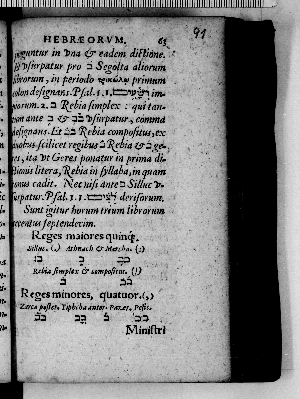 HEBRÆORVM. 63 91
guntur in vna & eadem dictione.
vsurpatur pro ב Segolta aliorum
librorum, in periodo τρικώλῳ primum
colon designans. Psal. 1. 1.
2. ב Rebia simplex : qui tan-
tum ante ב & ב vsurpatur, comma
designans. Et ב Rebia compositus, ex
duobus scilicet regibus ב Rebia & ב ge-
res, ita vt Geres ponatur in prima di-
ctionis litera, Rebia in syllaba, in quam
tonus cadit. Nec nisi ante ב Silluc v-
surpatur. Psal. 1. 1. derisorum.
Sunt igitur horum trium librorum
accentus septendecim.
Reges maiores quinq;.
Silluc. (.) Athnach & Mercha. (:)
Rebia simplex & compositus. (!)
Reges minores, quatuor. (,)
Zarca poster. Tiphcha anter. Pazer. Pesic.
Ministri